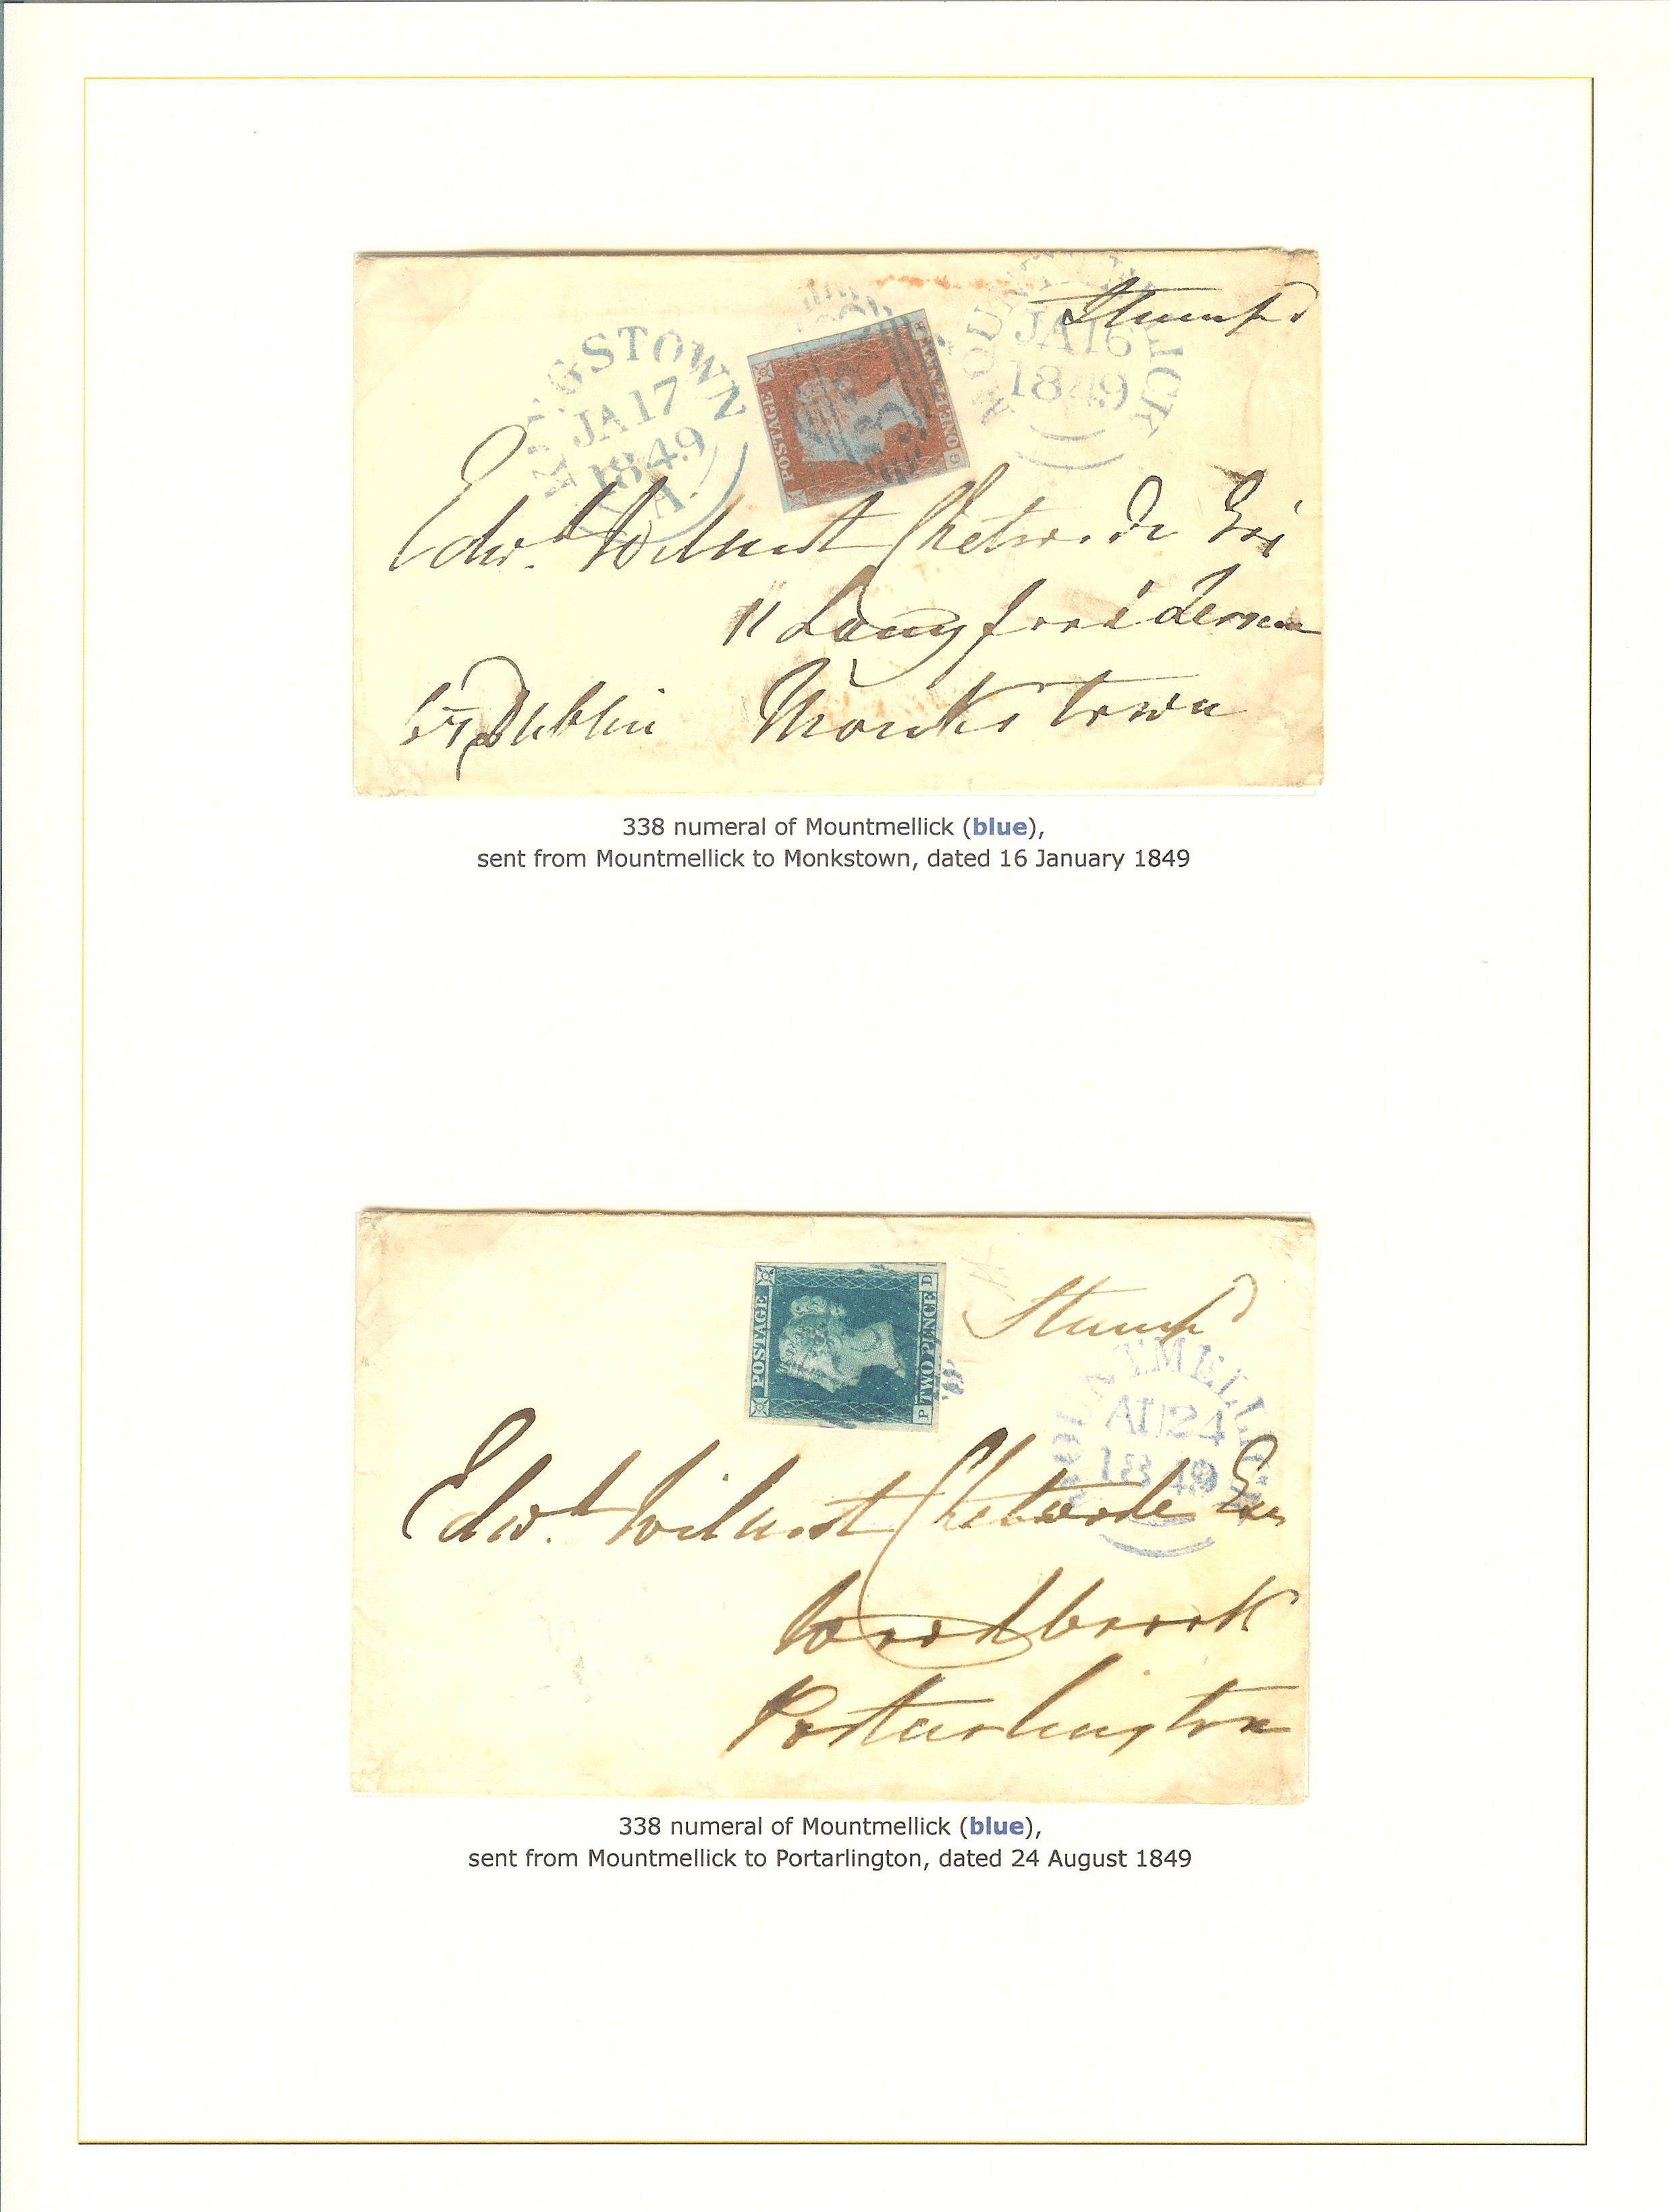 Stampd
MOUNTMELLICK
JA 16
1849
KINGSTOWN
JA 17
1849
A
POSTAGE
ONE PENNY
G
Edwd. Wilmot Chetwode Esq
11 Longford Terrace
Monkstown
by Dublin
338 numeral of Mountmellick (blue),
sent from Mountmellick to Monkstown, dated 16 January 1849
POSTAGE
P TWO PENCE D
Stampd
MOUNTMELLICK
AU 24
1849
Edwd. Wilmot Chetwode Esq
Woodbrook
Portarlington
338 numeral of Mountmellick (blue),
sent from Mountmellick to Portarlington, dated 24 August 1849